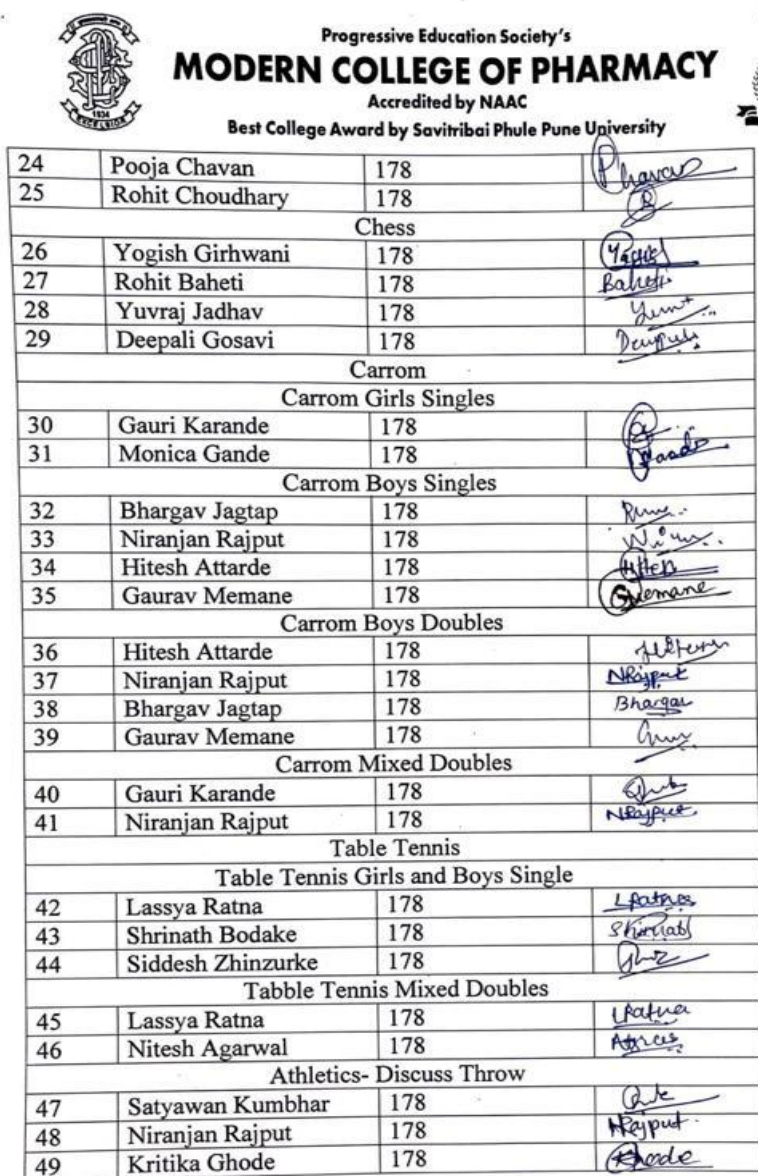 Progressive Education Society's
MODERN COLLEGE OF PHARMACY
Accredited by NAAC
Best College Award by Savitribai Phule Pune University
1934
EXCELSIOR
24 Pooja Chavan 178
25 Rohit Choudhary 178
Chess
26 Yogish Girhwani 178
27 Rohit Baheti 178 Baheti
28 Yuvraj Jadhav 178
29 Deepali Gosavi 178
Carrom
Carrom Girls Singles
30 Gauri Karande 178
31 Monica Gande 178
Carrom Boys Singles
32 Bhargav Jagtap 178
33 Niranjan Rajput 178
34 Hitesh Attarde 178
35 Gaurav Memane 178 GMemane
Carrom Boys Doubles
36 Hitesh Attarde 178
37 Niranjan Rajput 178 NRajput
38 Bhargav Jagtap 178 Bhargav
39 Gaurav Memane 178
Carrom Mixed Doubles
40 Gauri Karande 178
41 Niranjan Rajput 178 NRajput
Table Tennis
Table Tennis Girls and Boys Single
42 Lassya Ratna 178
43 Shrinath Bodake 178
44 Siddesh Zhinzurke 178
Tabble Tennis Mixed Doubles
45 Lassya Ratna 178 LRatna
46 Nitesh Agarwal 178
Athletics- Discuss Throw
47 Satyawan Kumbhar 178
48 Niranjan Rajput 178 NRajput
49 Kritika Ghode 178